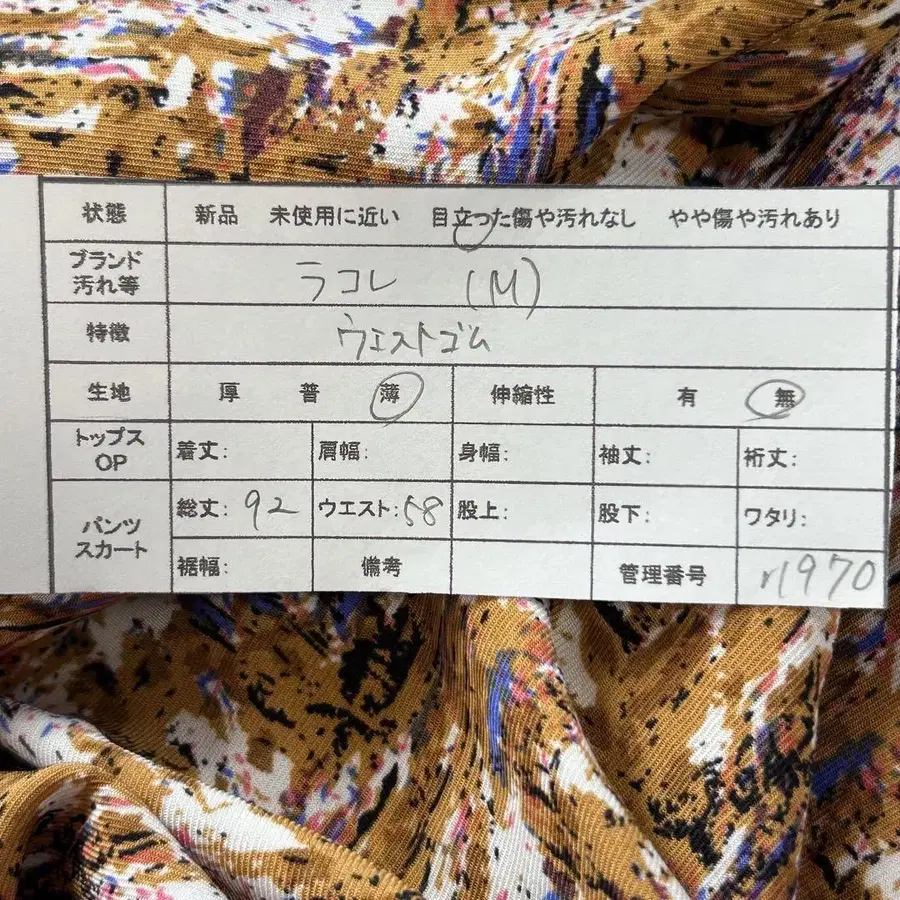 状態 新品 未使用に近い 目立った傷や汚れなし やや傷や汚れあり
ブランド
汚れ等 ラコレ (M)
特徴 ウエストゴム
生地 厚 普 薄 伸縮性 有 無
トップス
OP 着丈: 肩幅: 身幅: 袖丈: 裄丈:
パンツ
スカート 総丈: 92 ウエスト: 58 股上: 股下: ワタリ:
裾幅: 備考 管理番号 r1970